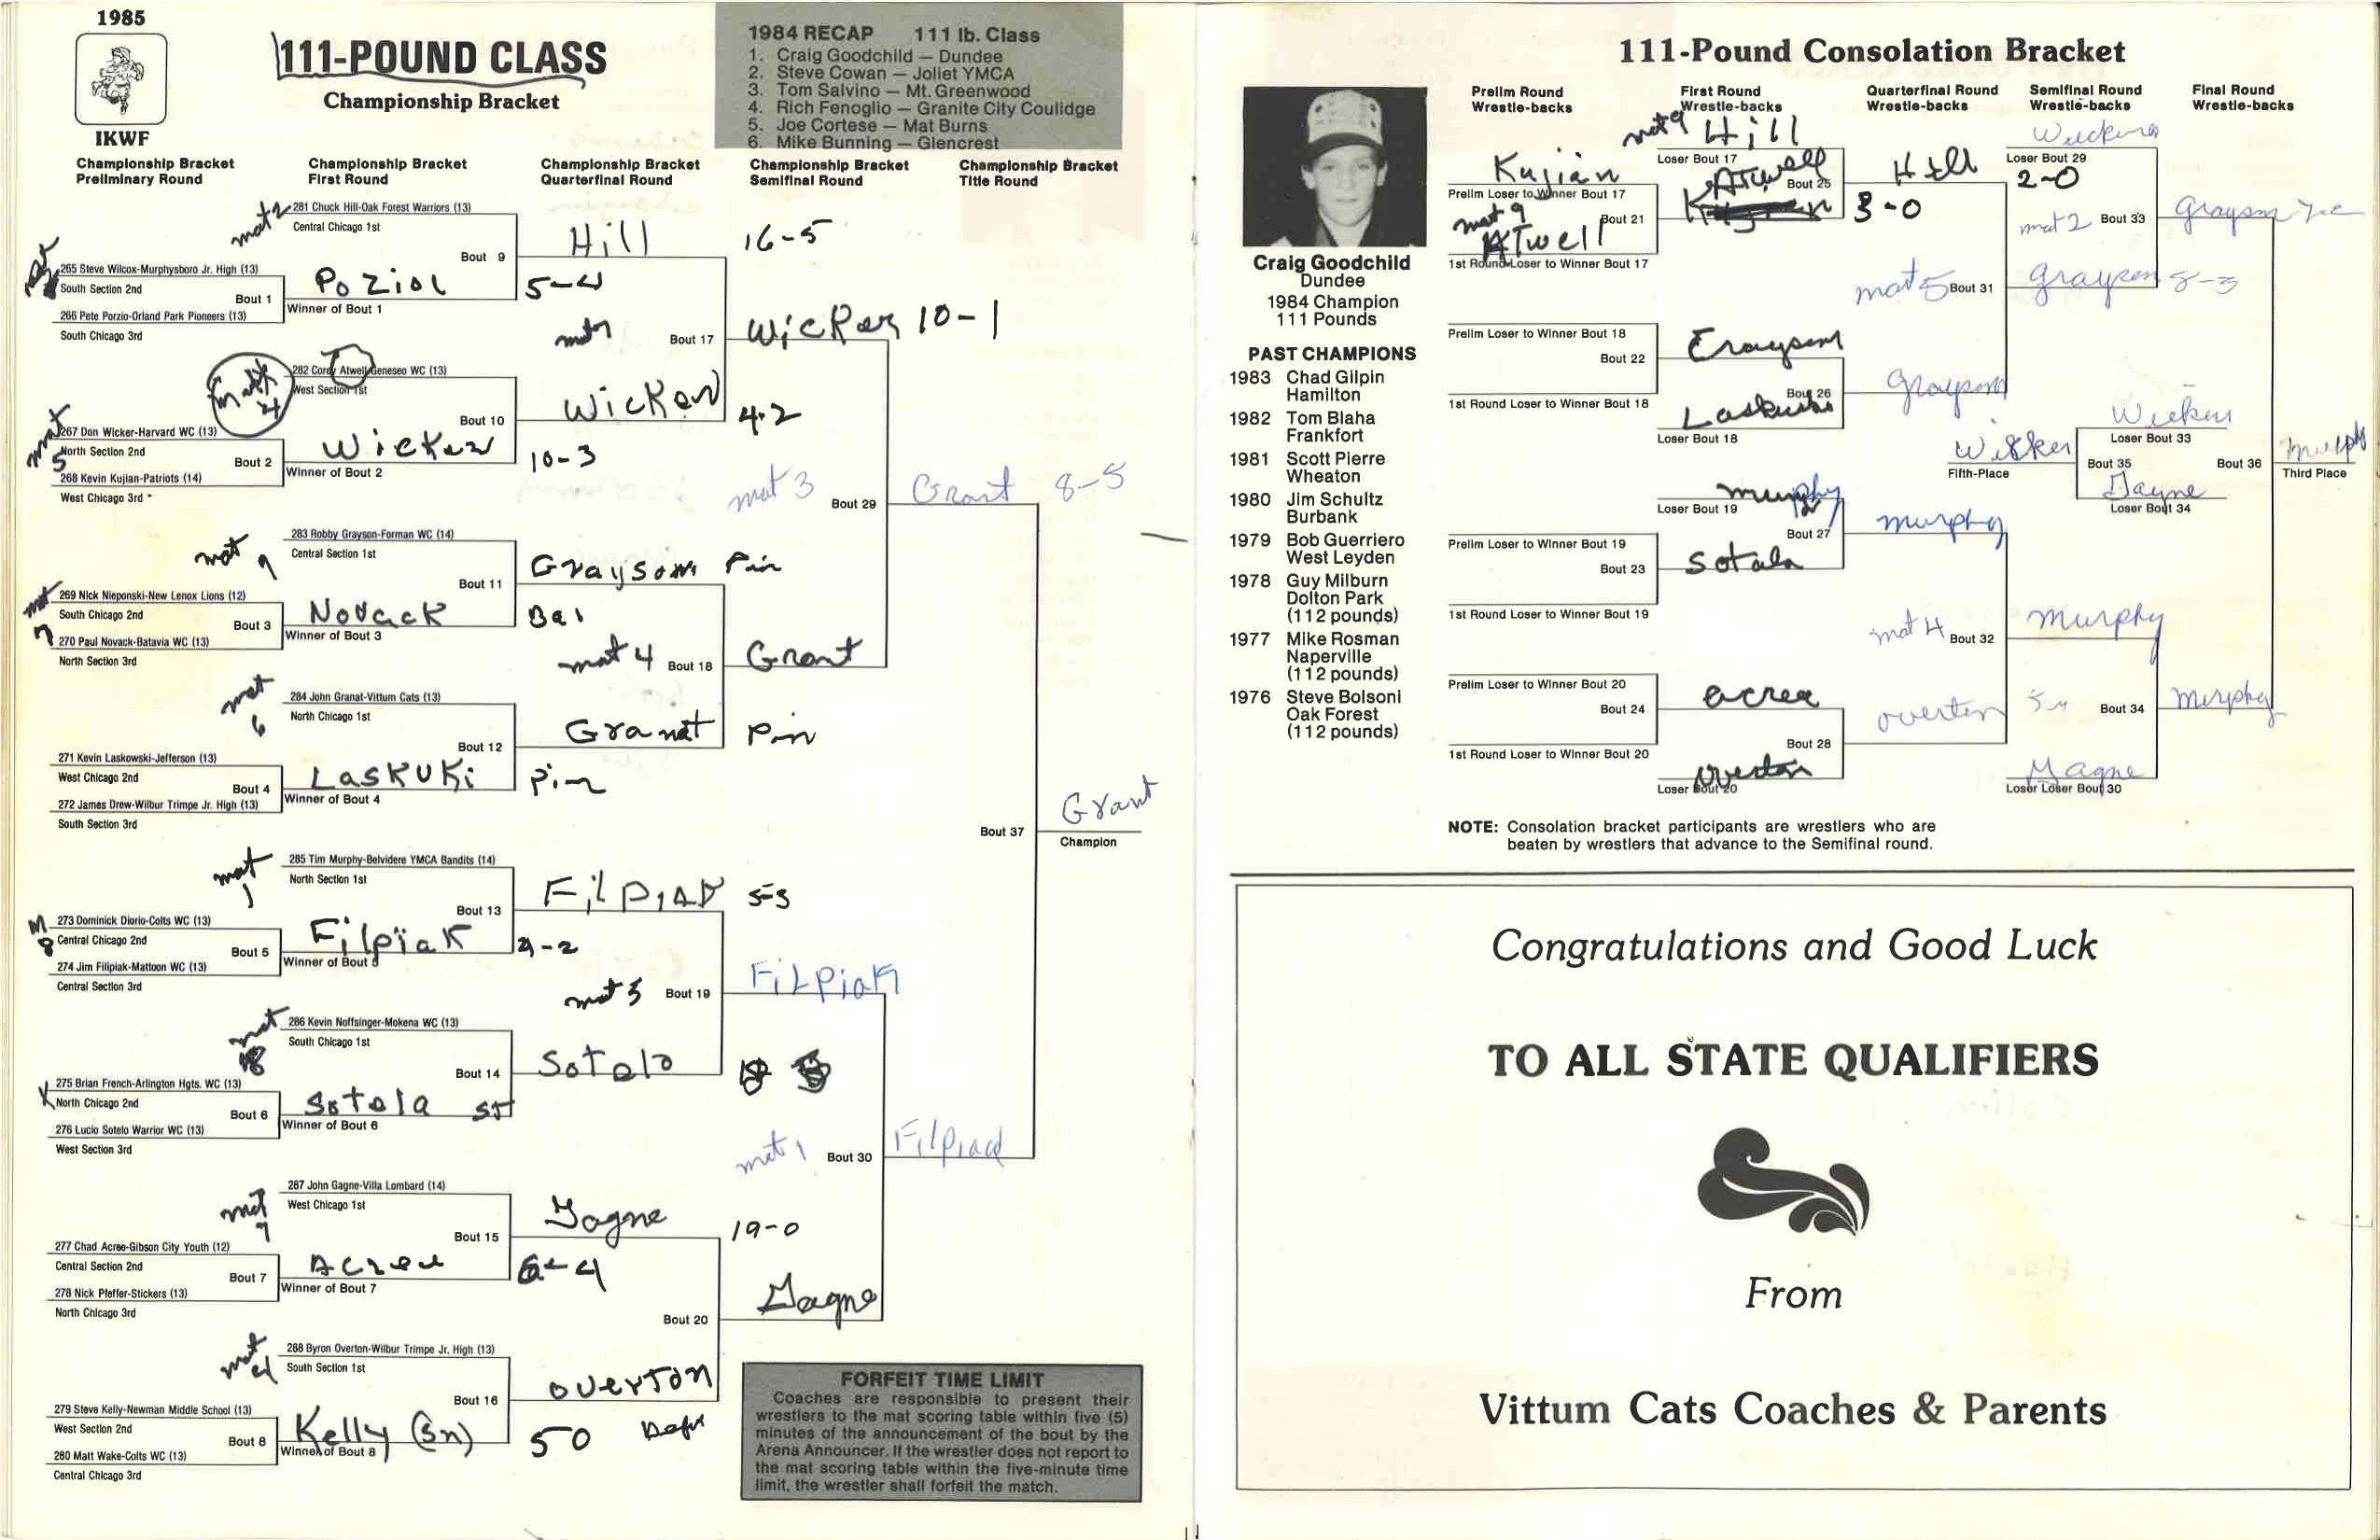 1985
IKWF
111-POUND CLASS
Championship Bracket
1984 RECAP 111 lb. Class
1. Craig Goodchild — Dundee
2. Steve Cowan — Joliet YMCA
3. Tom Salvino — Mt. Greenwood
4. Rich Fenoglio — Granite City Coulidge
5. Joe Cortese — Mat Burns
6. Mike Bunning — Glencrest
Championship Bracket Preliminary Round
Championship Bracket First Round
Championship Bracket Quarterfinal Round
Championship Bracket Semifinal Round
Championship Bracket Title Round
mat 2
281 Chuck Hill-Oak Forest Warriors (13)
Central Chicago 1st
Bout 9
Hill
16-5
265 Steve Wilcox-Murphysboro Jr. High (13)
South Section 2nd
Bout 1
Poziol
5-4
Winner of Bout 1
266 Pete Porzio-Orland Park Pioneers (13)
South Chicago 3rd
Bout 17
Wicker 10-1
282 Cordy Atwell-Geneseo WC (13)
West Section 1st
Bout 10
Wicker
4-2
mat 5
267 Don Wicker-Harvard WC (13)
North Section 2nd
Bout 2
Wicker
10-3
Winner of Bout 2
268 Kevin Kujian-Patriots (14)
West Chicago 3rd
mat 3
Bout 29
Grant 8-5
mat 9
283 Robby Grayson-Forman WC (14)
Central Section 1st
Bout 11
Grayson Pin
mat 7
269 Nick Nieponski-New Lenox Lions (12)
South Chicago 2nd
Bout 3
Novack
Winner of Bout 3
270 Paul Novack-Batavia WC (13)
North Section 3rd
mat 4
Bout 18
Grant
mat 6
284 John Granat-Vittum Cats (13)
North Chicago 1st
Bout 12
Granat
Pin
271 Kevin Laskowski-Jefferson (13)
West Chicago 2nd
Bout 4
Laskuki
Pin
Winner of Bout 4
272 James Drew-Wilbur Trimpe Jr. High (13)
South Section 3rd
Bout 37
Grant
Champion
mat 1
285 Tim Murphy-Belvidere YMCA Bandits (14)
North Section 1st
Bout 13
5-3
M 8
273 Dominick Diorio-Colts WC (13)
Central Chicago 2nd
Bout 5
Filpiak
4-2
Winner of Bout 5
274 Jim Filipiak-Mattoon WC (13)
Central Section 3rd
mat 5
Bout 19
Filpiak
mat
286 Kevin Noffsinger-Mokena WC (13)
South Chicago 1st
Bout 14
Sotelo
275 Brian French-Arlington Hgts. WC (13)
North Chicago 2nd
Bout 6
Sotela
Winner of Bout 6
276 Lucio Sotelo Warrior WC (13)
West Section 3rd
mat 1
Bout 30
mat 7
287 John Gagne-Villa Lombard (14)
West Chicago 1st
Bout 15
Gagne
19-0
277 Chad Acree-Gibson City Youth (12)
Central Section 2nd
Bout 7
Acree
6-4
Winner of Bout 7
278 Nick Pfeffer-Stickers (13)
North Chicago 3rd
Bout 20
Gagne
mat
288 Byron Overton-Wilbur Trimpe Jr. High (13)
South Section 1st
Bout 16
Overton
279 Steve Kelly-Newman Middle School (13)
West Section 2nd
Bout 8
Kelly
50
Winner of Bout 8
280 Matt Wake-Colts WC (13)
Central Chicago 3rd
FORFEIT TIME LIMIT
Coaches are responsible to present their
wrestlers to the mat scoring table within five (5)
minutes of the announcement of the bout by the
Arena Announcer. If the wrestler does not report to
the mat scoring table within the five-minute time
limit, the wrestler shall forfeit the match.
111-Pound Consolation Bracket
Prelim Round Wrestle-backs
First Round Wrestle-backs
Quarterfinal Round Wrestle-backs
Semifinal Round Wrestle-backs
Final Round Wrestle-backs
Craig Goodchild
Dundee
1984 Champion
111 Pounds
PAST CHAMPIONS
1983 Chad Gilpin
Hamilton
1982 Tom Blaha
Frankfort
1981 Scott Pierre
Wheaton
1980 Jim Schultz
Burbank
1979 Bob Guerriero
West Leyden
1978 Guy Milburn
Dolton Park
(112 pounds)
1977 Mike Rosman
Naperville
(112 pounds)
1976 Steve Bolsoni
Oak Forest
(112 pounds)
mat 9 Hill
Loser Bout 17
Kujian
Prelim Loser to Winner Bout 17
mat 9
Bout 21
Atwell
1st Round Loser to Winner Bout 17
Atwell
Bout 25
Hill
3-0
Loser Bout 29
2-0
mat 2
Bout 33
Grayson
mat 5
Bout 31
Grayson 8-3
Prelim Loser to Winner Bout 18
Bout 22
1st Round Loser to Winner Bout 18
Bout 26
Grayson
Loser Bout 18
Loser Bout 33
Wicker
Fifth-Place
Bout 35
Gagne
Loser Bout 34
Bout 36
Third Place
Murphy
Loser Bout 19
Bout 27
Murphy
Prelim Loser to Winner Bout 19
Bout 23
Sotala
1st Round Loser to Winner Bout 19
mat 4
Bout 32
Murphy
Prelim Loser to Winner Bout 20
Bout 24
Acree
1st Round Loser to Winner Bout 20
Bout 28
Overton
Overton
Loser Bout 20
Bout 34
Murphy
Gagne
Loser Loser Bout 30
NOTE: Consolation bracket participants are wrestlers who are
beaten by wrestlers that advance to the Semifinal round.
Congratulations and Good Luck
TO ALL STATE QUALIFIERS
From
Vittum Cats Coaches & Parents